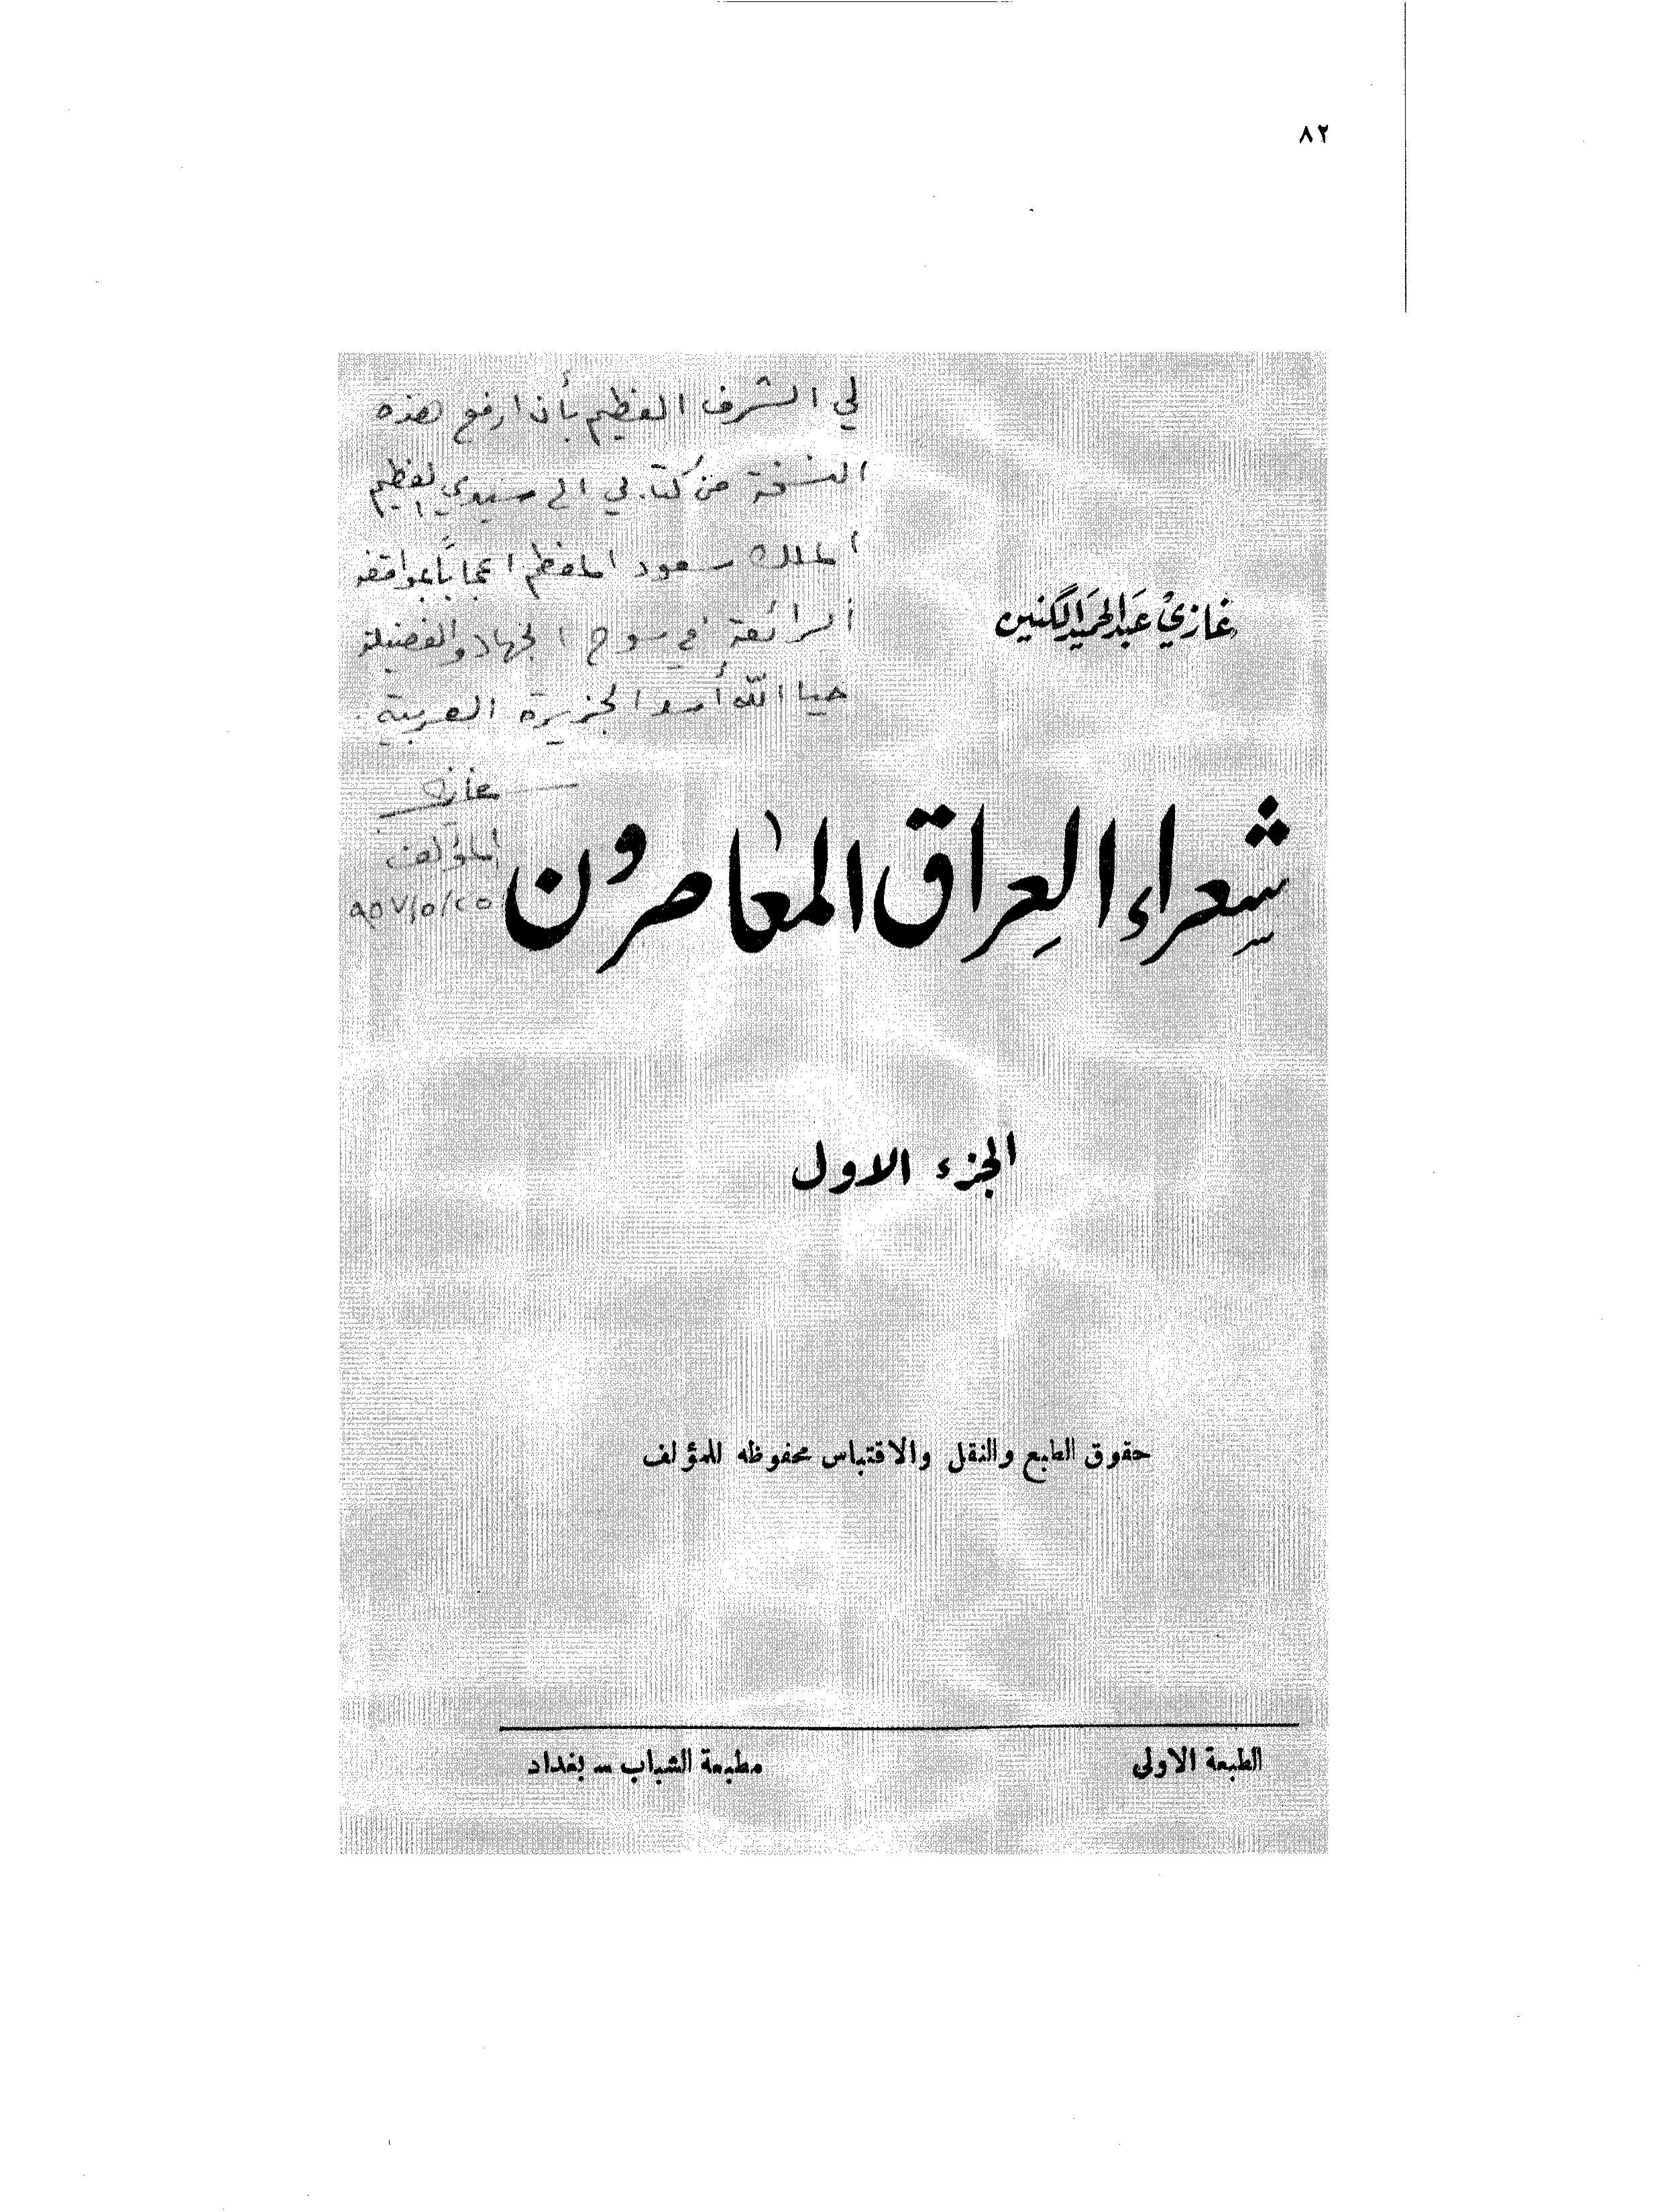 ٨٢
لي الشرف العظيم بأن ارفع هذه
النسخة من كتابي الى سيدي العظيم
الملك سعود المعظم اعجاباً بمواقفه
الرائعة في سوح الجهاد والفضيلة
حيا الله أسد الجزيرة العربية .
غازي
المؤلف
٩٥٧/٥/٢٥
غازي عبد الحميد الگنين
شعراء العراق المعاصرون
الجزء الاول
حقوق الطبع والنقل والاقتباس محفوظه للمؤلف
الطبعة الاولى
مطبعة الشباب – بغداد